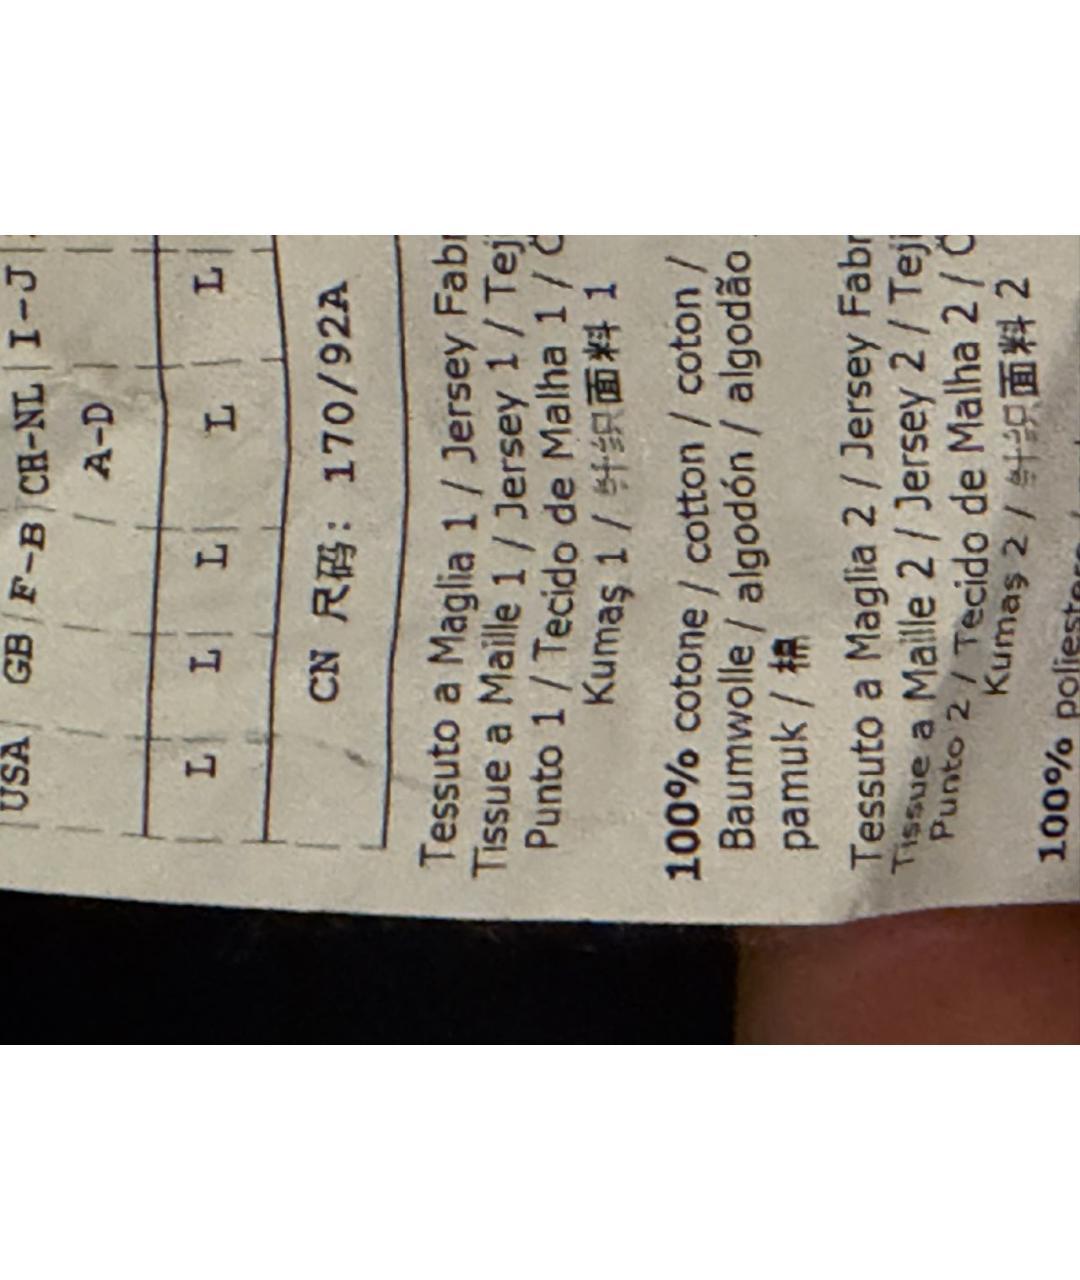 USA | GB | F-B | CH-NL | I-J |
A-D
L | L | L | L | L
CN 尺码: 170/92A
Tessuto a Maglia 1 / Jersey Fabr
Tissue a Maille 1 / Jersey 1 / Teji
Punto 1 / Tecido de Malha 1 /
Kumaş 1 / 针织面料 1
100% cotone / cotton / coton /
Baumwolle / algodón / algodão
pamuk / 棉
Tessuto a Maglia 2 / Jersey Fabr
Tissue a Maille 2 / Jersey 2 / Teji
Punto 2 / Tecido de Malha 2 /
Kumaş 2 / 针织面料 2
100%